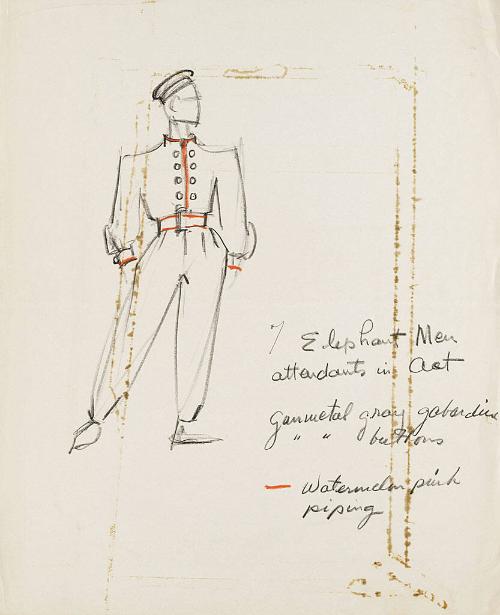 7 Elephant Men
attendants in Act
Gunmetal gray gabardine
" " buttons
— Watermelon pink
piping